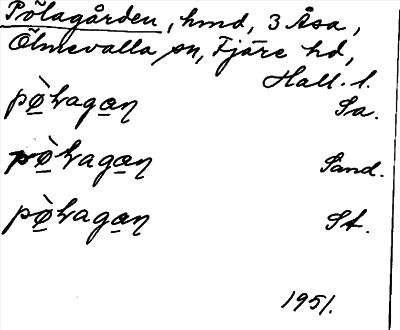 Pölagården, hmd, 3 Åsa,
Ölmevalla sn, Fjäre hd,
Hall. l.
pø̀ƚagaɳ Sa.
pø̀ƚagaɳ Sand.
pø̀ƚagaɳ St.
1951.